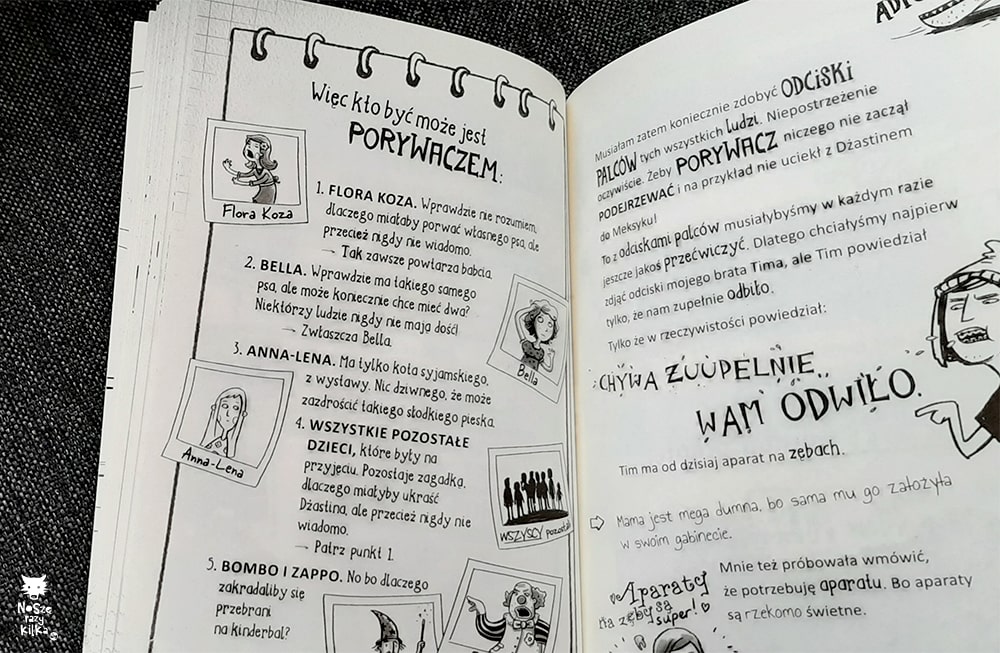 Więc kto być może jest
PORYWACZEM:
Flora Koza
1. FLORA KOZA. Wprawdzie nie rozumiem,
dlaczego miałaby porwać własnego psa, ale
przecież nigdy nie wiadomo.
→ Tak zawsze powtarza babcia.
2. BELLA. Wprawdzie ma takiego samego
psa, ale może koniecznie chce mieć dwa?
Niektórzy ludzie nigdy nie mają dość!
→ Zwłaszcza Bella.
Bella
3. ANNA-LENA. Ma tylko kota syjamskiego,
z wystawy. Nic dziwnego, że może
zazdrościć takiego słodkiego pieska.
Anna-Lena
4. WSZYSTKIE POZOSTAŁE
DZIECI, które były na
przyjęciu. Pozostaje zagadką,
dlaczego miałyby ukraść
Dżastina, ale przecież nigdy nie
wiadomo.
→ Patrz punkt 1.
WSZYSCY pozostali
5. BOMBO I ZAPPO. No bo dlaczego
zakradaliby się
przebrani
na kinderbal?
Musiałam zatem koniecznie zdobyć ODCISKI
PALCÓW tych wszystkich ludzi. Niepostrzeżenie
oczywiście. Żeby PORYWACZ niczego nie zaczął
PODEJRZEWAĆ i na przykład nie uciekł z Dżastinem
do Meksyku!
To z odciskami palców musiałybyśmy w każdym razie
jeszcze jakoś przećwiczyć. Dlatego chciałyśmy najpierw
zdjąć odciski mojego brata Tima, ale Tim powiedział
tylko, że nam zupełnie odbiło.
Tylko że w rzeczywistości powiedział:
CHYWA ZUUPEŁNIE
WAM ODWIŁO.
Tim ma od dzisiaj aparat na zębach.
Mama jest mega dumna, bo sama mu go założyła
w swoim gabinecie.
Mnie też próbowała wmówić,
że potrzebuję aparatu. Bo aparaty
są rzekomo świetne.
Aparaty
na zęby są
super!
NoSze
razy
kilka